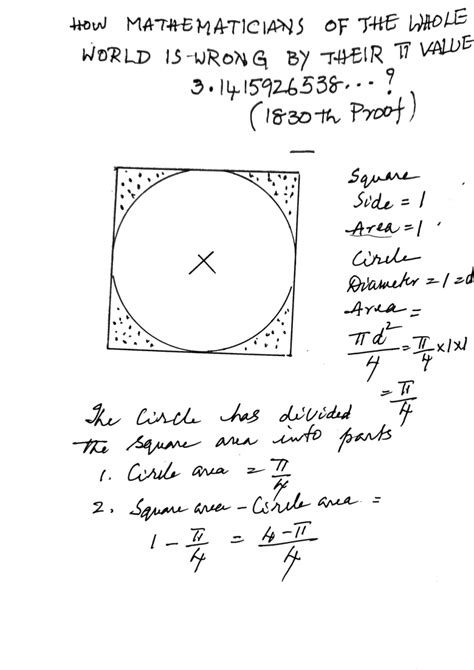 HOW MATHEMATICIANS OF THE WHOLE
WORLD IS WRONG BY THEIR π VALUE
3.1415926538... ?
(1830th Proof)
Square
Side = 1
Area = 1
Circle
Diameter = 1 = d
Area =
πd²/4 = π/4 × 1 × 1
= π/4
The Circle has divided
the square area into parts
1. Circle area = π/4
2. Square area - Circle area =
1 - π/4 = 4-π/4